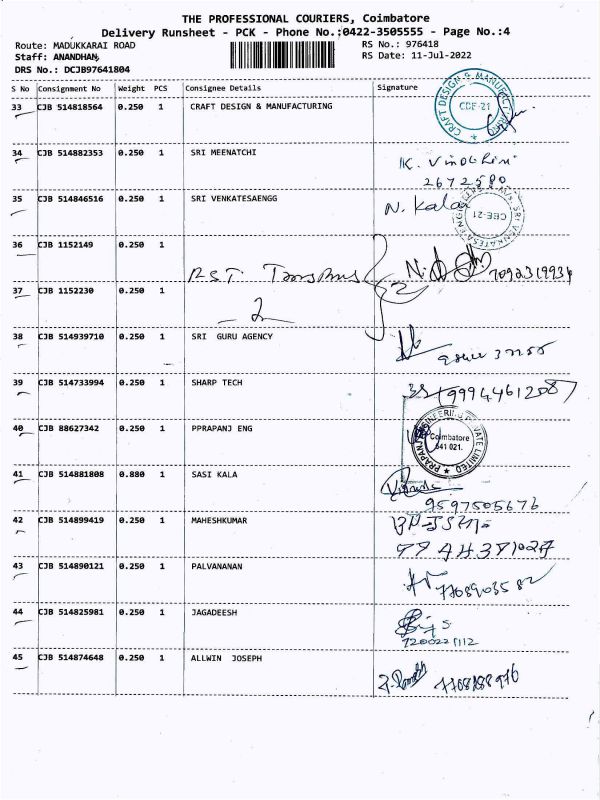 THE PROFESSIONAL COURIERS, Coimbatore
Delivery Runsheet - PCK - Phone No.:0422-3505555 - Page No.:4
Route: MADUKKARAI ROAD RS No.: 976418
Staff: ANANDHAN RS Date: 11-Jul-2022
DRS No.: DCJB97641804
S No Consignment No Weight PCS Consignee Details Signature
33 CJB 514818564 0.250 1 CRAFT DESIGN & MANUFACTURING
CBE-21
34 CJB 514882353 0.250 1 SRI MEENATCHI K. Vinothini
2672580
35 CJB 514846516 0.250 1 SRI VENKATESAENGG N. Kalai
CBE-21
36 CJB 1152149 0.250 1
R.S.T. 7092319934
37 CJB 1152230 0.250 1
2
38 CJB 514939710 0.250 1 SRI GURU AGENCY
39 CJB 514733994 0.250 1 SHARP TECH 9994461208
40 CJB 88627342 0.250 1 PPRAPANJ ENG
Coimbatore
641 021.
41 CJB 514881808 0.880 1 SASI KALA
9597505676
42 CJB 514899419 0.250 1 MAHESHKUMAR
43 CJB 514890121 0.250 1 PALVANANAN
44 CJB 514825981 0.250 1 JAGADEESH
45 CJB 514874648 0.250 1 ALLWIN JOSEPH